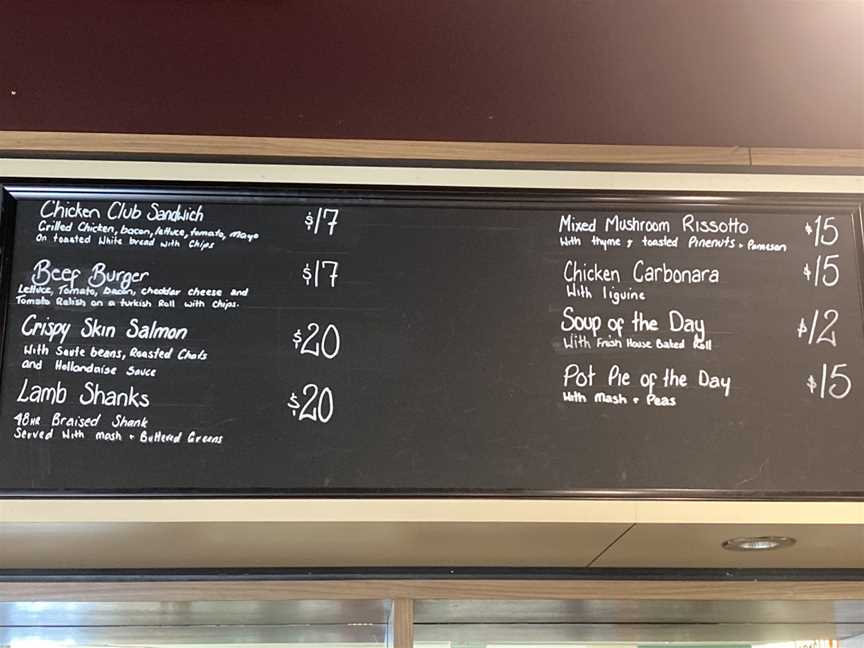 Chicken Club Sandwich $17
Grilled Chicken, bacon, lettuce, tomato, mayo
On toasted White bread with Chips
Beef Burger $17
Lettuce, Tomato, bacon, cheddar cheese and
Tomato Relish on a turkish Roll with Chips.
Crispy Skin Salmon $20
With Saute beans, Roasted Chats
and Hollandaise Sauce
Lamb Shanks $20
48HR Braised Shank
Served With mash + Buttered Greens
Mixed Mushroom Rissotto $15
With thyme & toasted Pinenuts + Parmesan
Chicken Carbonara $15
With liguine
Soup of the Day $12
With Fresh House Baked Roll
Pot Pie of the Day $15
With Mash + Peas